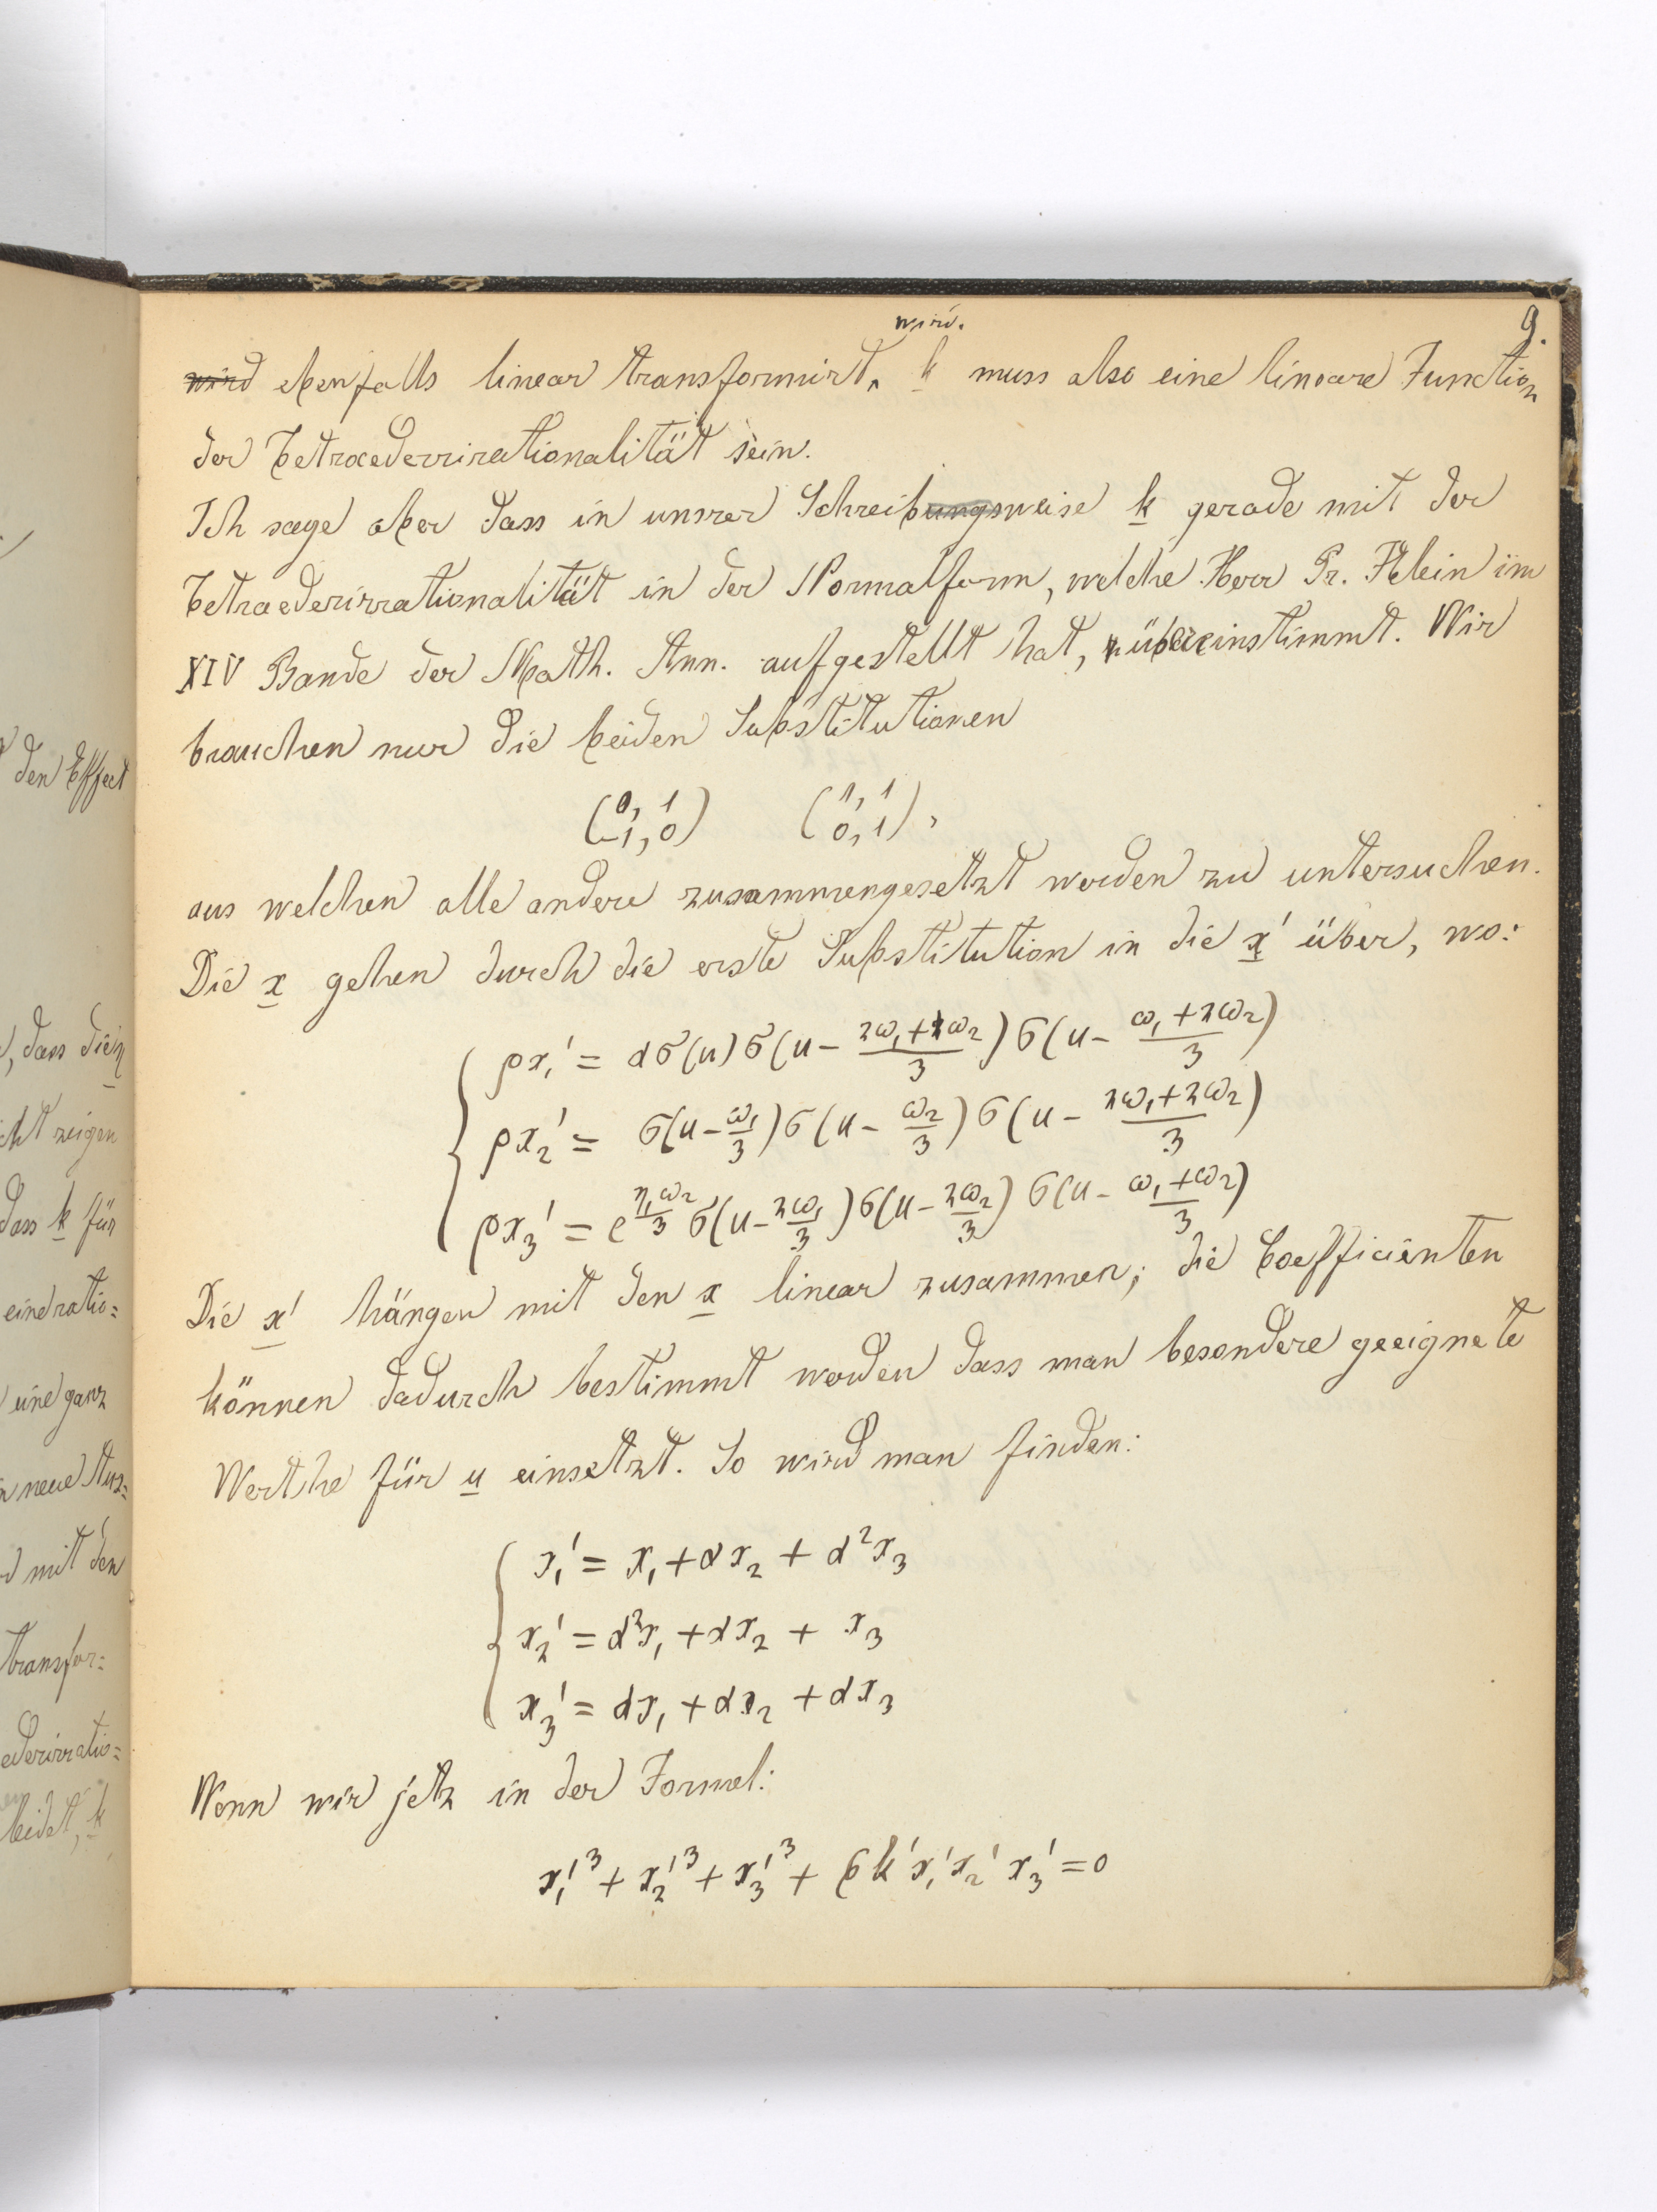 den Effect
, dass die η
cht zeigen
dass k für
eine ratio=
eine ganz
neue Aus=
mit den
transfor=
ederirratio=
leidet, k
9.
wird.
wird ebenfalls linear transformirt, k muss also eine lineare Function
der Tetraederrirationalität sein.
Ich sage aber dass in unsrer Schreibungsweise k gerade mit der
Tetraederirrationalität in der Normalform, welche Herr Pr. Klein im
XIV Bande der Math. Ann. aufgestellt hat, übereinstimmt. Wir
brauchen nur die beiden Substitutionen
(0, 1 / -1, 0) (1, 1 / 0, 1),
aus welchen alle andere zusammengesetzt werden zu untersuchen.
Die x gehen durch die erste Substitution in die x' über, wo:
ρx₁' = ασ(u)σ(u - (2ω₁+ω₂)/3)σ(u - (ω₁+2ω₂)/3)
ρx₂' = σ(u - ω₁/3)σ(u - ω₂/3)σ(u - (2ω₁+2ω₂)/3)
ρx₃' = e^(η₁ω₂/3) σ(u - 2ω₁/3)σ(u - 2ω₂/3)σ(u - (ω₁+ω₂)/3)
Die x' hängen mit den x linear zusammen; die Coefficienten
können dadurch bestimmt werden dass man besondere geeignete
Werthe für u einsetzt. So wird man finden:
x₁' = x₁ + αx₂ + α²x₃
x₂' = α²x₁ + αx₂ + x₃
x₃' = αx₁ + αx₂ + αx₃
Wenn wir jetz in der Formel:
x₁'³ + x₂'³ + x₃'³ + 6k'x₁'x₂'x₃' = 0